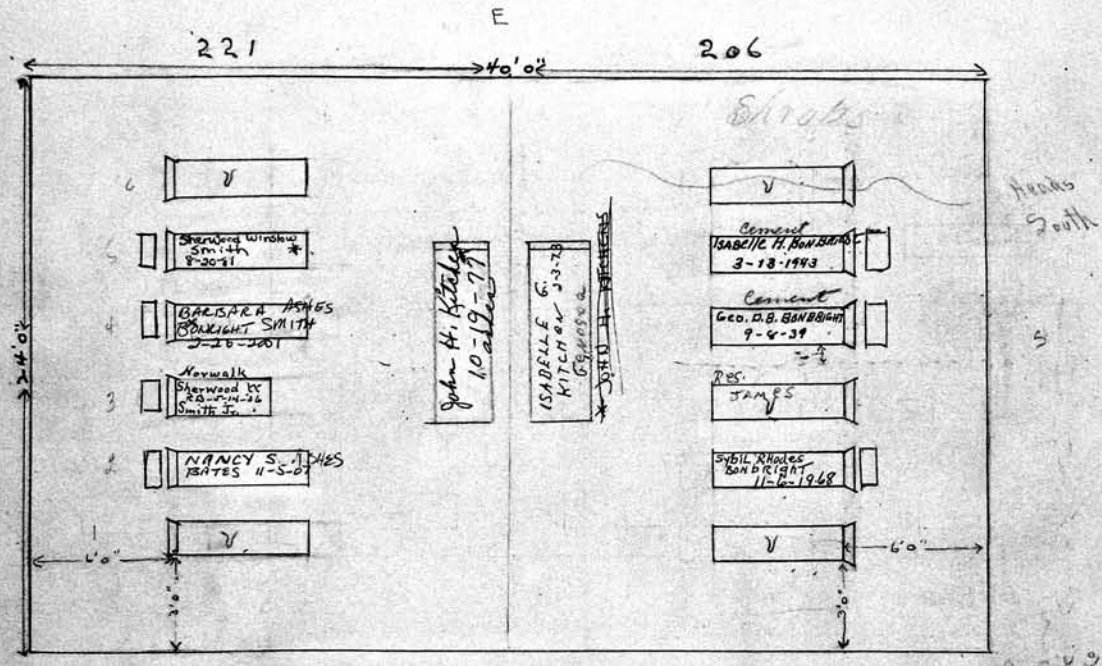 E
221
206
40'0"
Shrubs
24'0"
6
V
5
Sherwood Winslow
Smith *
8-20-81
4
BARBARA ASHES
BONRIGHT SMITH
2-26-2001
Norwalk
3
Sherwood
Smith Jr.
2
NANCY S. ASHES
BATES 11-5-07
1
V
6'0"
3'0"
John H. Kitchen
10-19-77
ashes
ISABELLE G.
KITCHON 2-3-73
JOHN H. KITCHENS
V
Heads
South
Cement
ISABELLE H. BONBRIGHT
3-13-1943
Cement
GEO. D.B. BONBRIGHT
9-8-39
S
Res.
JAMES
V
Sybil Rhodes
Bonbright
11-6-1968
V
6'0"
3'0"